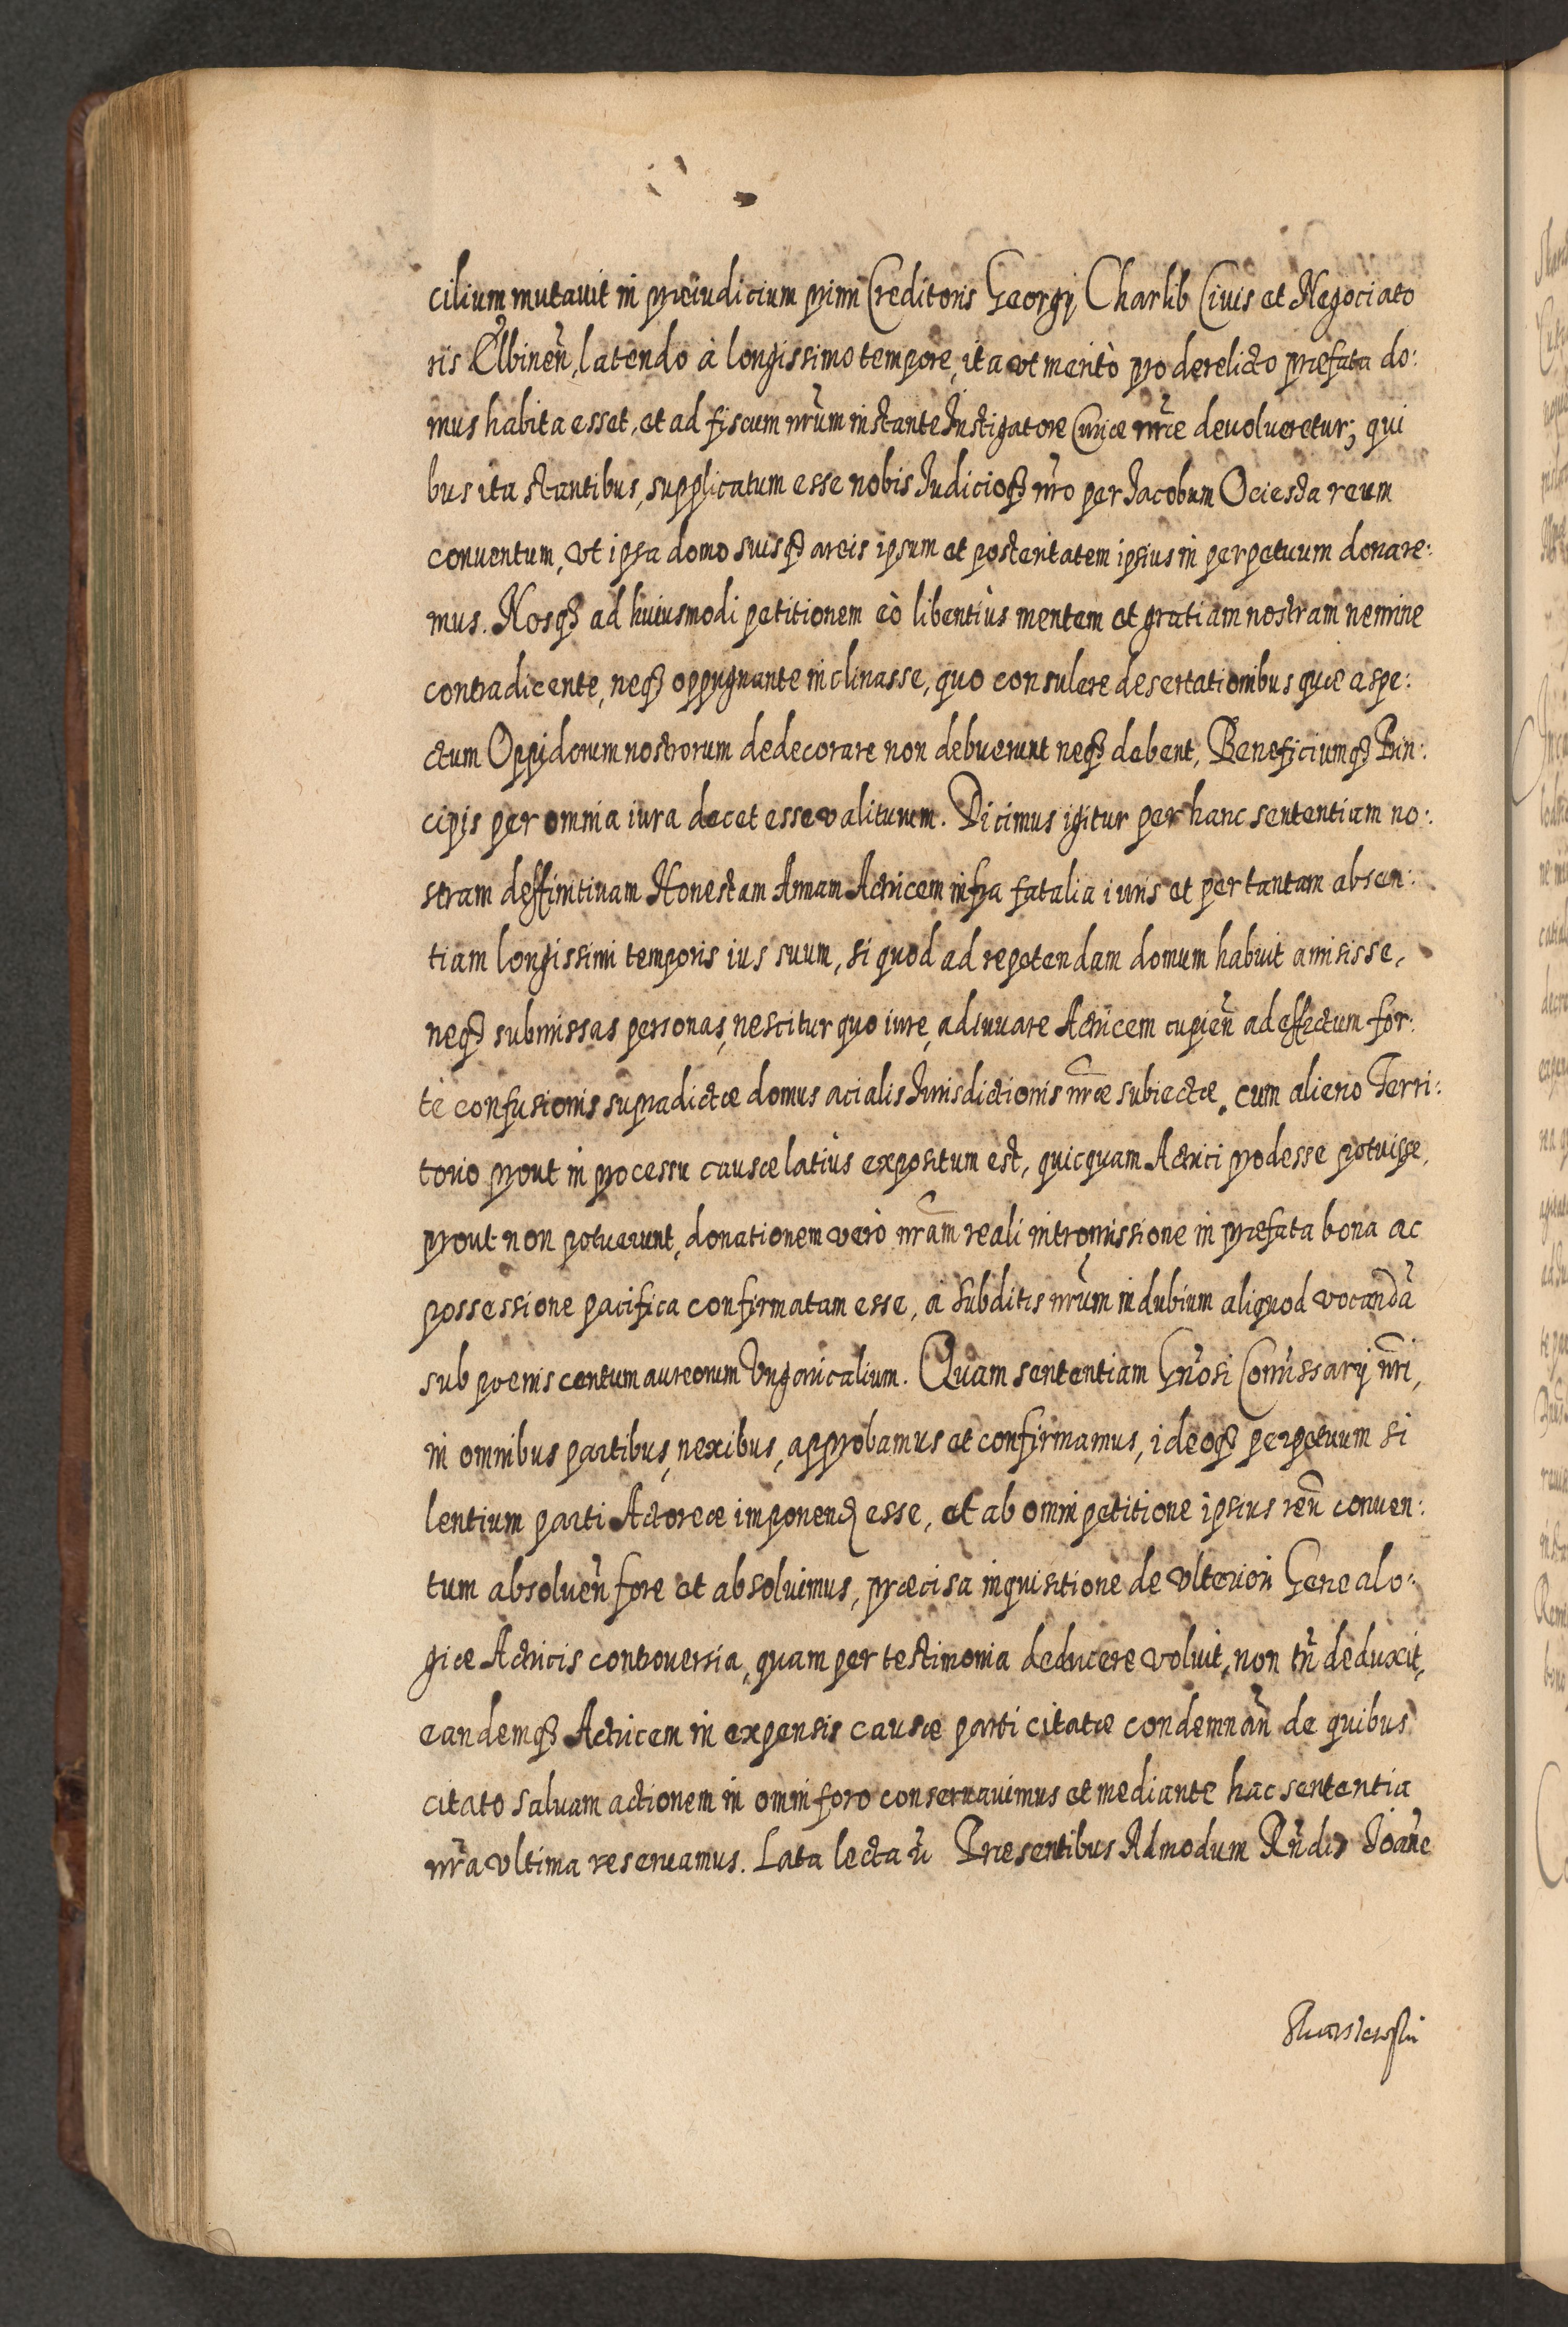 cilium mutauit in præiudicium primi Creditoris Georgij Charlib Ciuis et Negociato
ris Elbineñ, latendo à longissimo tempore, ita vt meritò pro derelicto præfata do:
mus habita esset, et ad fiscum nr̃um instante Instigatore Curiæ nr̃æ deuolueretur; qui
bus ita stantibus, supplicatum esse nobis Iudicioq3 nr̃o per Iacobum Ociesta reum
conuentum, vt ipsa domo suisq3 areis ipsum et posteritatem ipsius in perpetuum donare:
mus. Nosq3 ad huiusmodi petitionem eò libentiùs mentem et gratiam nostram nemine
contradicente, neq3 oppugnante inclinasse, quo consulere desertationibus quæ aspe:
ctum Oppidorum nostrorum dedecorare non debuerunt neq3 debent, Beneficiumq3 Prin:
cipis per omnia iura decet esse valiturum. Dicimus igitur per hanc sententiam no:
stram deffinitiuam Honestam Annam Actricem infra fatalia iuris et per tantam absen:
tiam longissimi temporis ius suum, si quod ad repetendam domum habuit amisisse,
neq3 submissas personas, nescitur quo iure, adiuuare Actricem cupieñ ad effectum for:
tè confusionis supradictæ domus acialis Iurisdictionis nr̃æ subiectæ. cum alieno Terri:
torio prout in processu causæ latiùs expositum est, quicquam Actrici prodesse potuisse,
prout non potuerunt, donationem verò nr̃am reali intromissione in præfata bona ac
possessione pacifica confirmatam esse, à subditis nr̃um in dubium aliquod vocandã
sub poenis centum aureorum Vngaricalium. Quam sententiam Gñosi Com̃issarij nr̃i,
in omnibus partibus, nexibus, approbamus et confirmamus, ideoq3 perpetuum si
lentium parti Actoreæ imponend esse, et ab omni petitione ipsius reũ conuen:
tum absolueñ fore et absoluimus, præcisa inquisitione de vlteriori Genealo:
giæ Actricis controuersia, quam per testimonia deducere voluit, non tñ deduxit,
eandemq3 Actricem in expensis causæ parti citatæ condemnañ de quibus
citato saluam actionem in omni foro conseruauimus et mediante hac sententia
nr̃a vltima reseruamus. Lata lecta Præsentibus Admodum Rñdis Ioañe